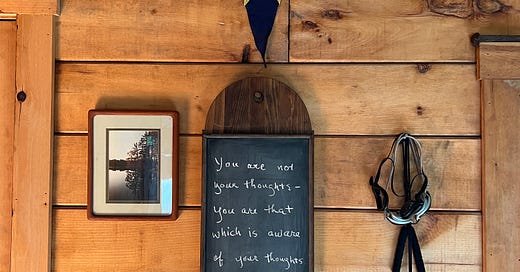 You are not
your thoughts –
You are that
which is aware
of your thoughts